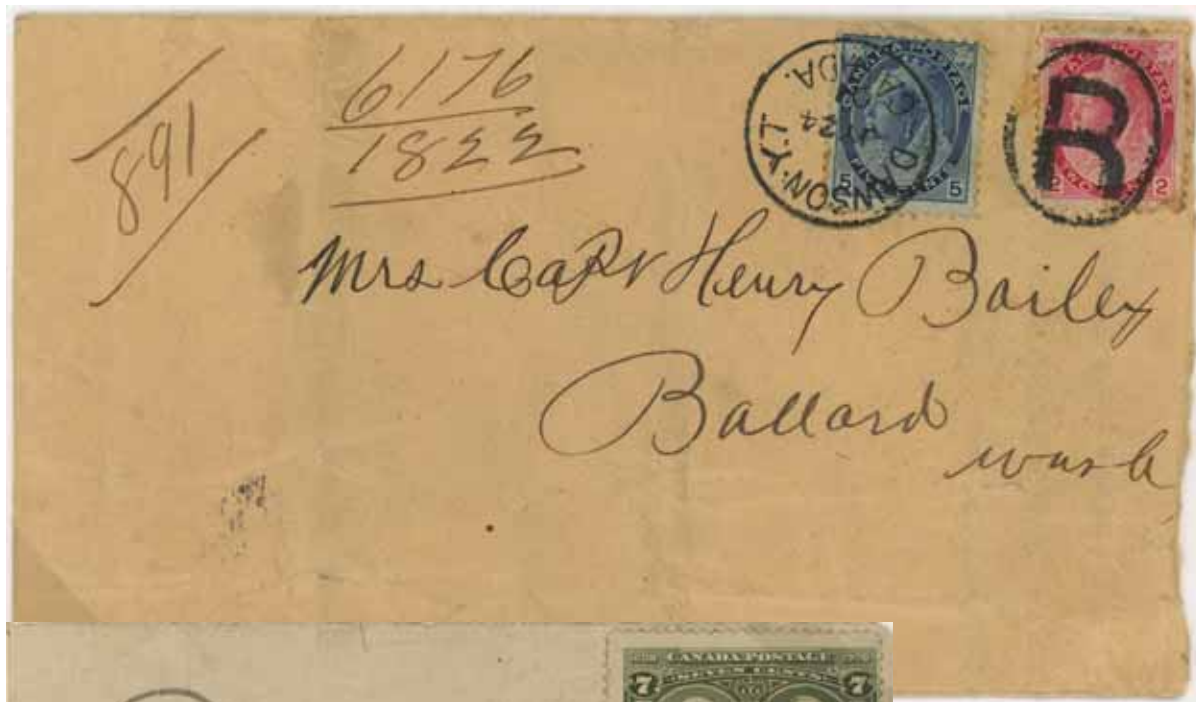 891
6176
1822
DAWSON. Y.T.
CANADA.
24
CANADA POSTAGE
5 5
R
2 2
Mrs Capt Henry Bailey
Ballard
wash
CANADA POSTAGE
SEVEN CENTS
7 7